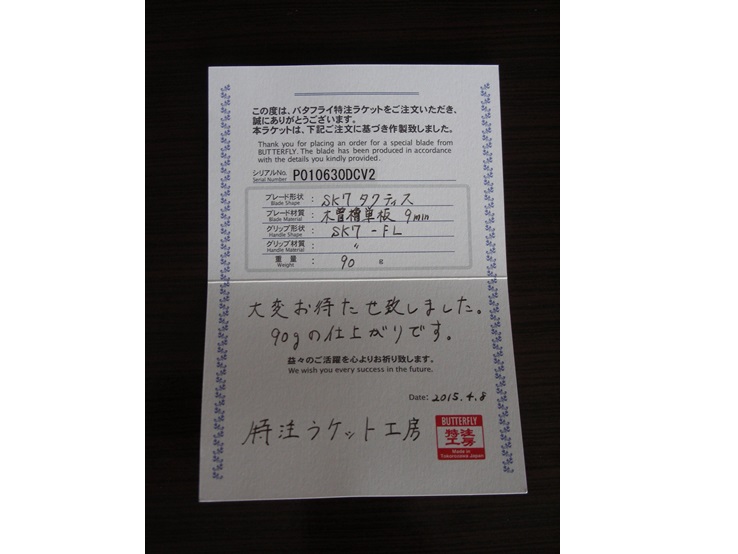 この度は、バタフライ特注ラケットをご注文いただき、
誠にありがとうございます。
本ラケットは、下記ご注文に基づき作製致しました。
Thank you for placing an order for a special blade from
BUTTERFLY. The blade has been produced in accordance
with the details you kindly provided.
シリアルNo.
Serial Number P010630DCV2
ブレード形状 : SK7 タクティス
Blade Shape
ブレード材質 : 木曽檜単板 9mm
Blade Material
グリップ形状 : SK7-FL
Handle Shape
グリップ材質 : 〃
Handle Material
重量 : 90 g
Weight
大変お待たせ致しました。
90gの仕上がりです。
益々のご活躍を心よりお祈り致します。
We wish you every success in the future.
Date: 2015.4.8
特注ラケット工房
BUTTERFLY
特注
工房
Made in
Tokorozawa Japan